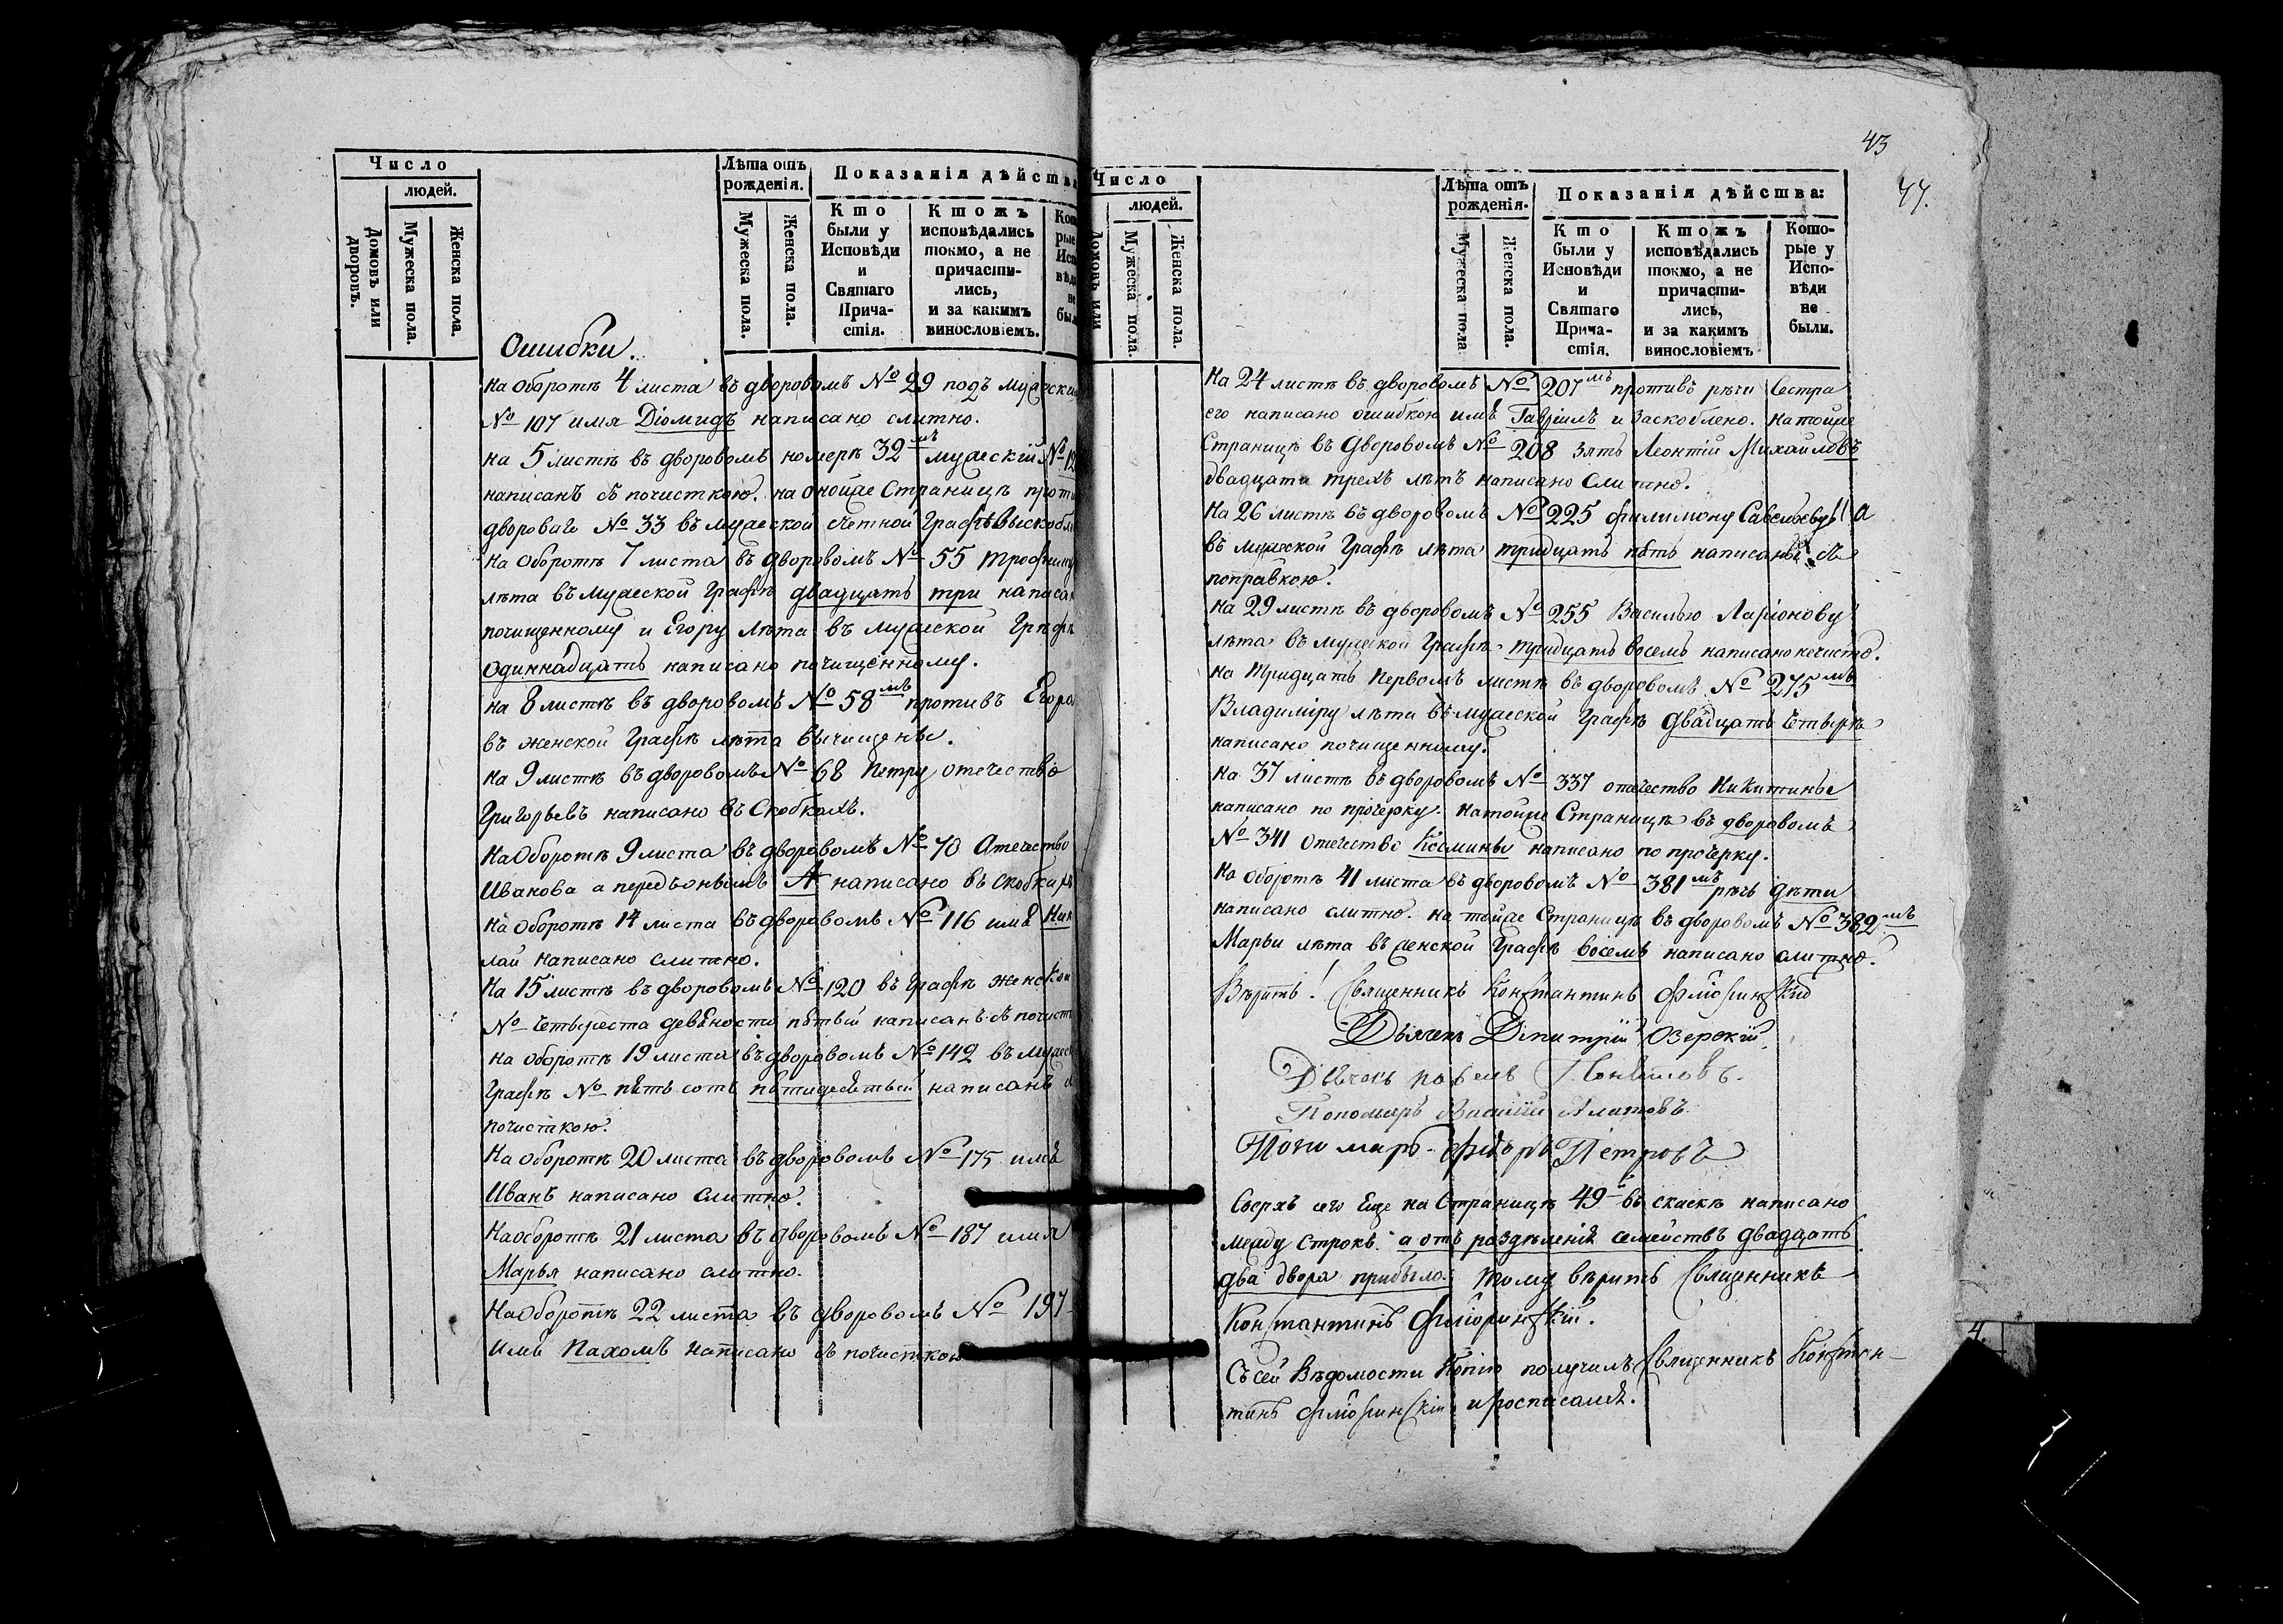 Число
людей.
Домовъ или дворовъ.
Мужеска пола.
Женска пола.
Лѣта отъ рожденія.
Мужеска пола.
Женска пола.
Показанія дѣйства
Кто были у Исповѣди и Святаго Причастія.
Ктожъ исповѣдались токмо, а не причастились, и за какимъ винословіемъ.
Ошибки.
на оборотѣ 4 листа въ дворовомъ № 29 подъ
№ 107 имя Діомидъ написано слитно.
на 5 листѣ въ дворовомъ номерѣ 32мъ мужескій №
написанъ съ почисткою. на оной же Страницѣ
дворовагѡ № 33 въ мужеской счетной Графѣ
на оборотѣ 7 листа въ дворовомъ № 55
лѣта въ мужеской Графѣ двадцать три
почищенному и Егору лѣта въ мужеской Графѣ
одиннадцать написано почищенному.
на 8 листѣ въ дворовомъ № 58мъ противъ
въ женской Графѣ лѣта вычищены.
на 9 листѣ въ дворовомъ № 68 Петру отечество
Григорьевъ написано въ Скобкахъ.
На Оборотѣ 9 листа въ дворовомъ № 70 Отечество
Иванова а передъ онымъ А написано въ скобкахъ
на оборотѣ 14 листа въ дворовомъ № 116 имя Ник
лай написано слитно.
На 15 листѣ въ дворовомъ № 120 въ Графѣ женской
№ четыреста девяносто пятый написанъ съ
на оборотѣ 19 листа въ дворовомъ № 149 въ
Графѣ № пять сотъ пятидесятый написанъ
почисткою.
На оборотѣ 20 листа въ дворовомъ № 175 имя
Иванъ написано Слитно.
На оборотѣ 21 листа въ дворовомъ № 187 имя
Марья написано слитно.
На Оборотѣ 22 листа въ дворовомъ № 197
имя Пахомъ написано съ почисткою
43
44.
Число
людей.
Мужеска пола.
Женска пола.
Лѣта отъ рожденія.
Мужеска пола
Женска пола.
Показанія дѣйства:
Кто были у Исповѣди и Святаго Причастія.
Ктожъ исповѣдались токмо, а не причастились, и за какимъ винословіемъ
Которые у Исповѣди не были.
На 24 листѣ въ дворовомъ № 207мъ противъ рѣчи Сестра
его написано ошибкою имя Гавріилъ и Заскоблено. На той же
Страницѣ въ дворовомъ № 208 Зять Леонтій Михайловъ
двадцати трехъ лѣтъ написано Слитно.
На 26 листѣ въ дворовомъ № 225 Филимону Савельеву
въ мужеской Графѣ лѣта тридцать пять написаны съ
поправкою.
На 29 листѣ въ дворовомъ № 255 Василью Ларіонову
лѣта въ мужеской Графѣ тридцать восемь написано нечисто.
на Тридцать Первомъ листѣ въ дворовомъ № 275мъ
Владиміру лѣта въ мужеской Графѣ двадцать четыре
написано почищенному.
На 37 листѣ въ дворовомъ № 337 отечество Никитины
написано по прочерку. На той же Страницѣ въ дворовомъ
№ 341 Отечество Космины написано по прочерку.
На оборотѣ 41 листа въ дворовомъ № 381мъ рѣчь дѣти
написано слитно. на той же Страницѣ въ дворовомъ № 382мъ
Марьи лѣта въ женской Графѣ восемь написано слитно.
Вѣритъ! Священникъ Константинъ
Дьячекъ Дмитрій Озерскій
Дьячекъ Павелъ
Пономарь Василій
Пономарь Петровъ
Сверхъ сего Еще на Страницѣ 49й въ скаскѣ написано
между строкъ: а отъ раздѣленія семействъ двадцать
два двора прибыло. Тому вѣритъ Священникъ
Константинъ Фліоринскій.
Съ сей Вѣдомости Копію получилъ Священникъ Констан-
тинъ Фліоринскій и росписался.